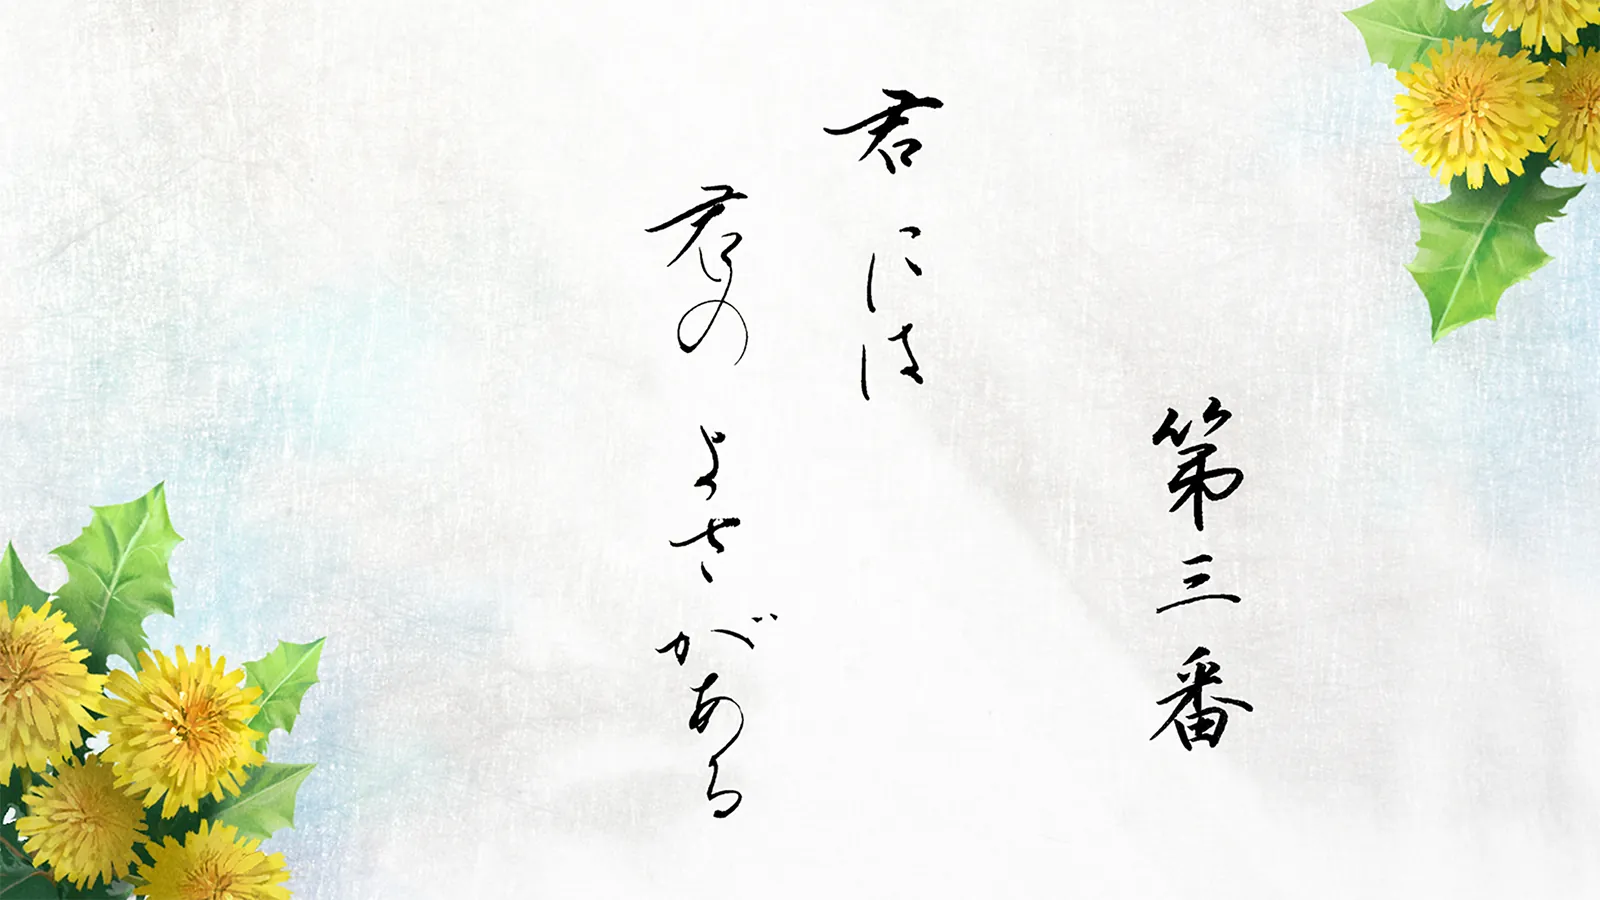 第三番
君には
君のよさがある